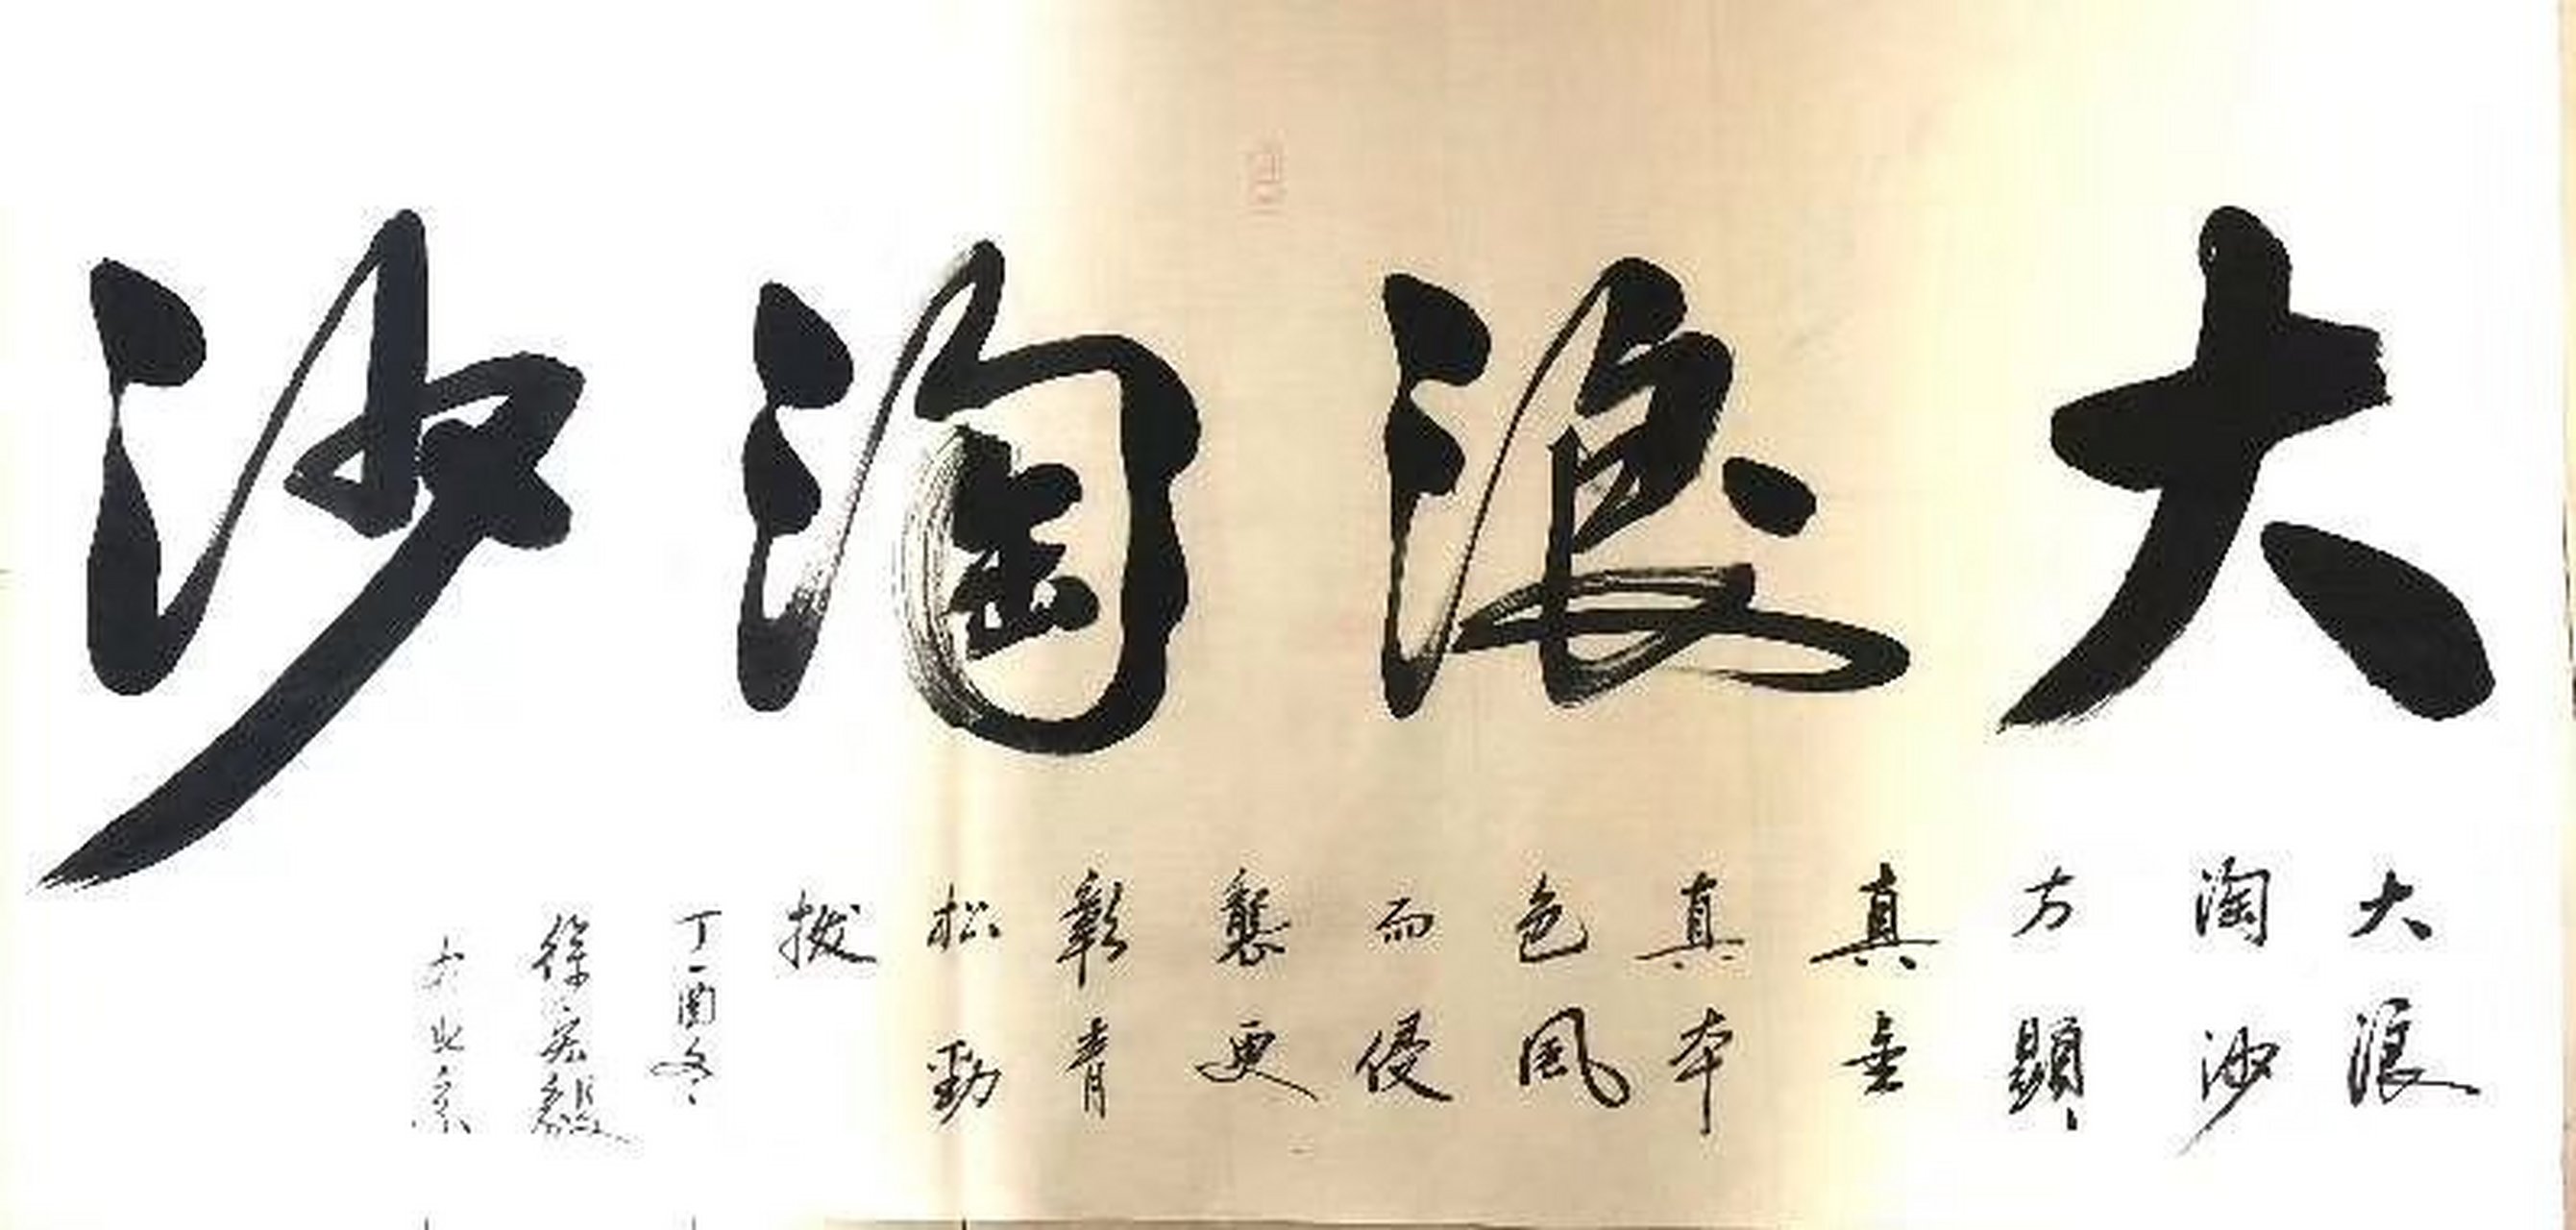 大浪淘沙
大浪
淘沙
方顯
真金
真本
色風
雨侵
襲更
彰青
松勁
拔
丁酉冬
徐宏毅
於北京